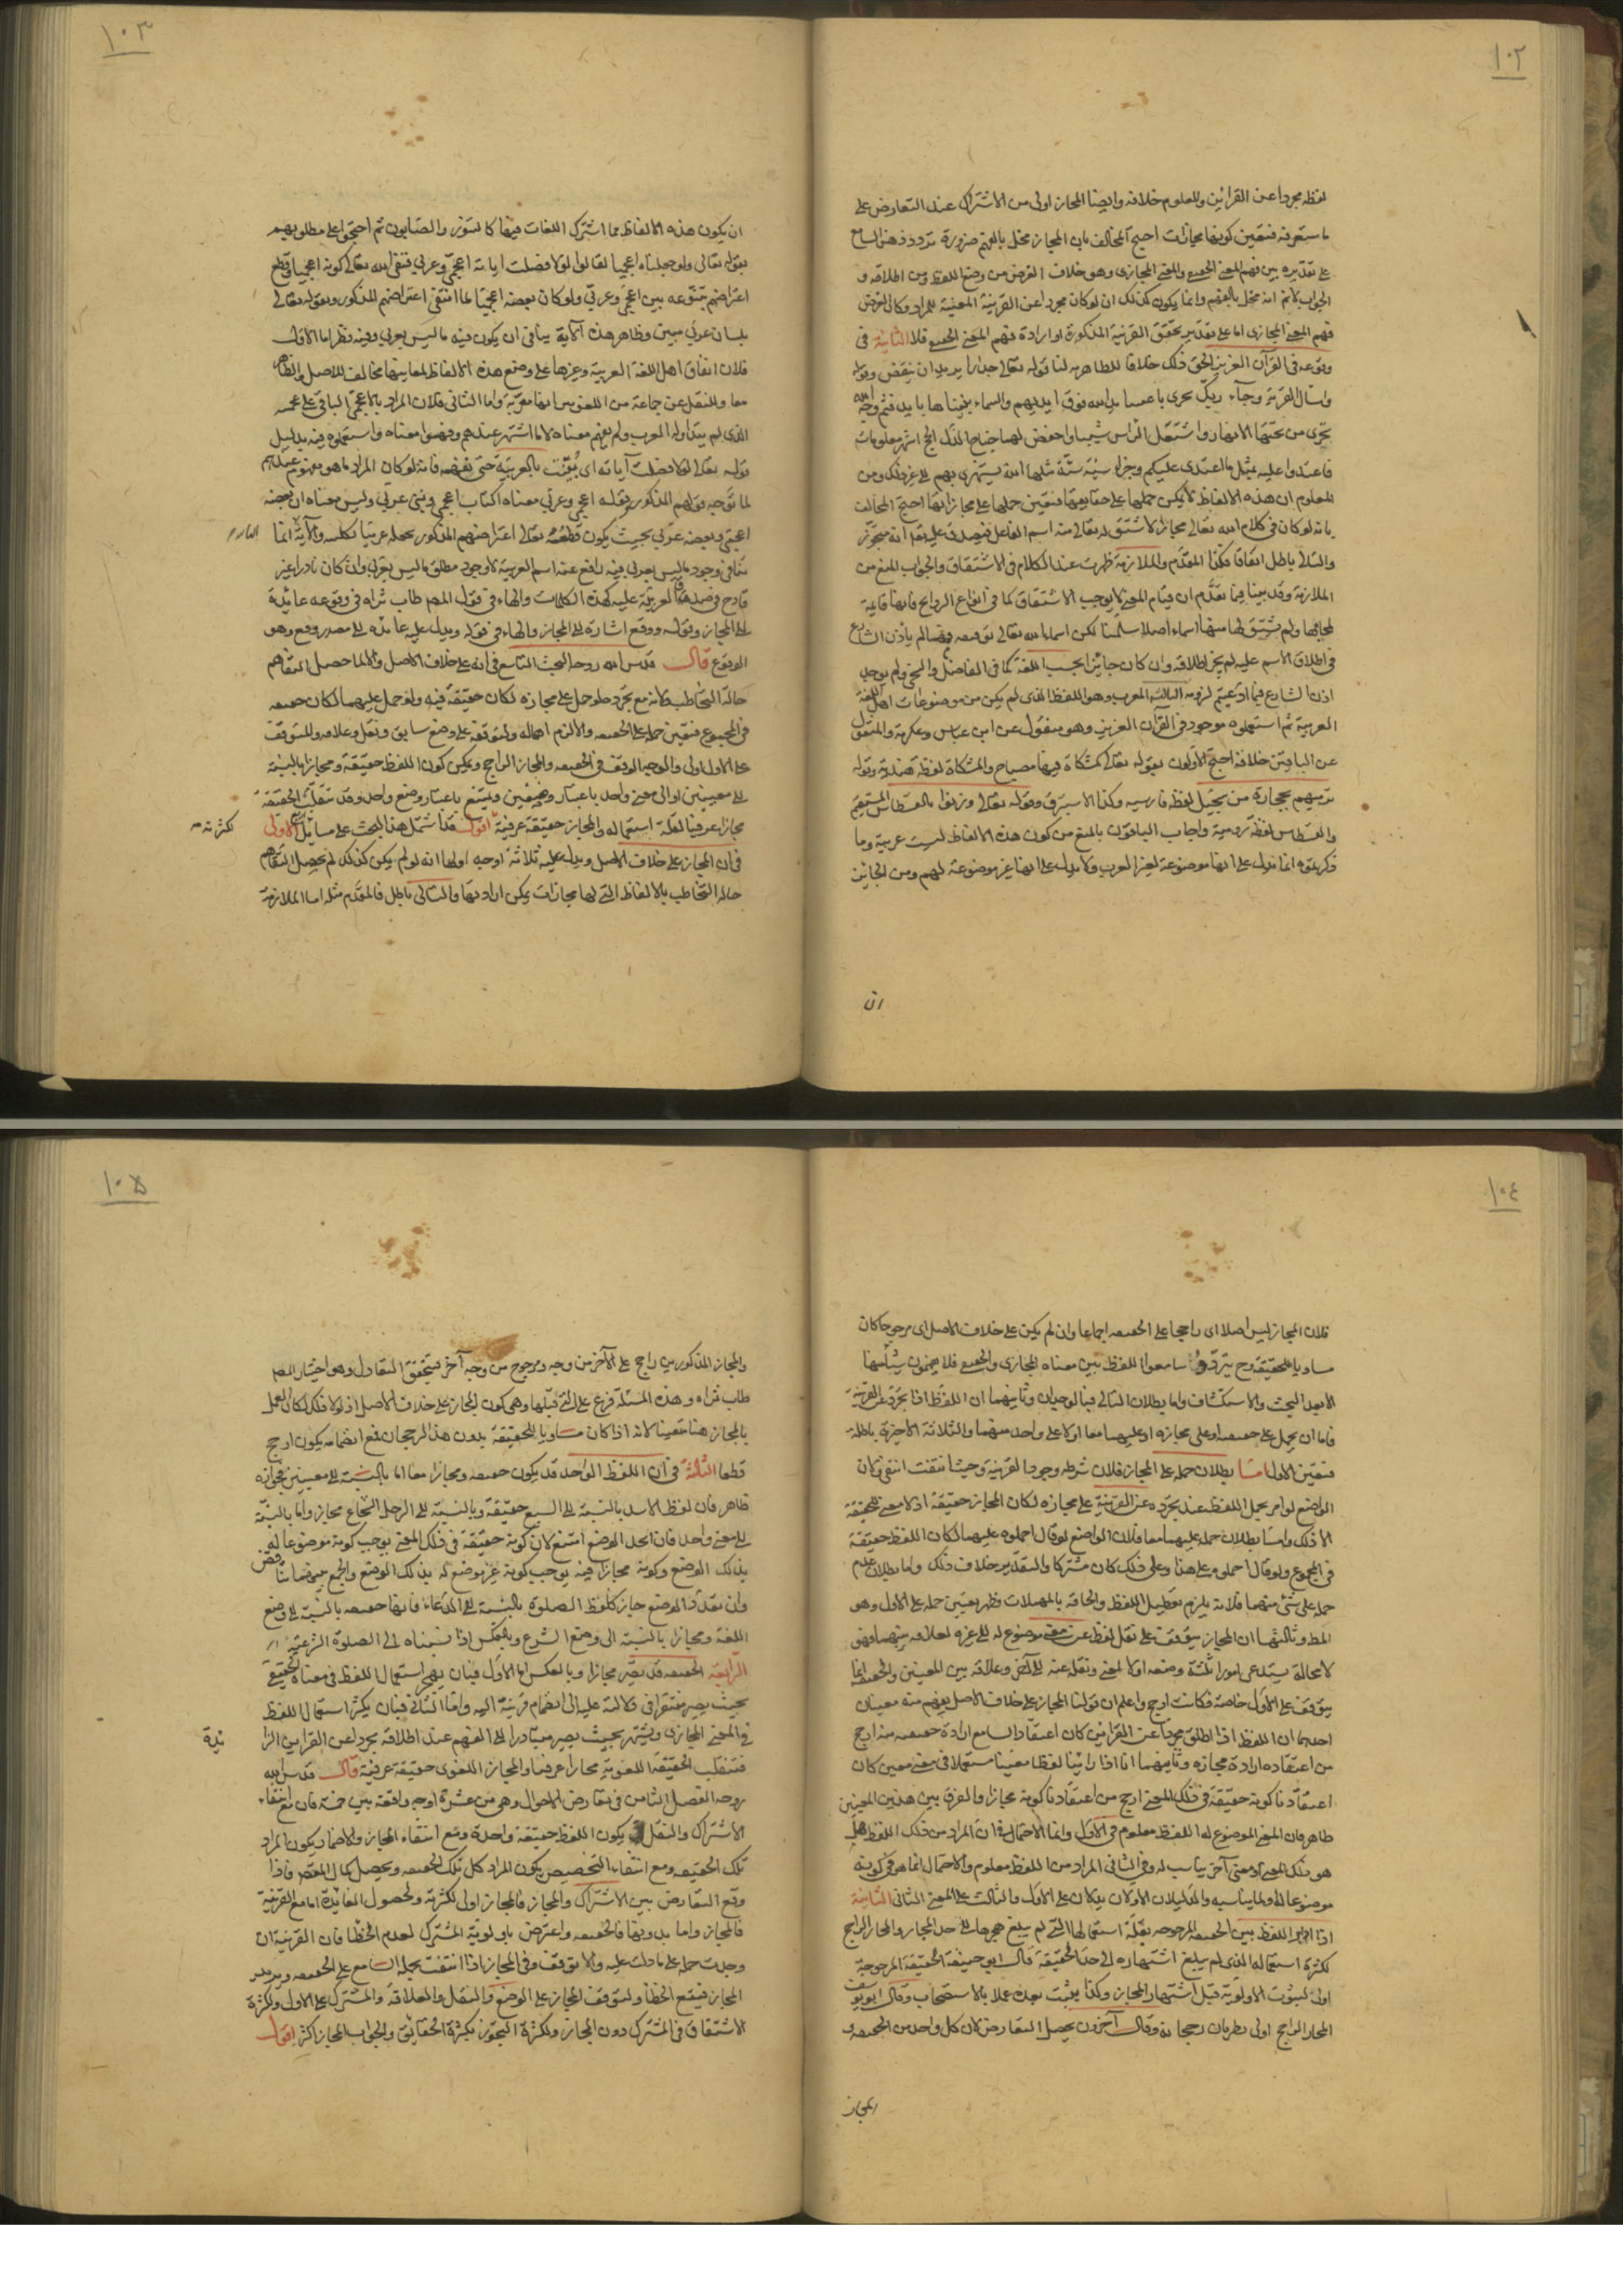 ١٠٢
لفظه مجردا عن القراين والمعلوم خلافه وايضا المجاز اولى من الاشتراك عند التعارض على
ما ستعرفه فتعين كونها مجازات احتج المخالف بان المجاز مخل بالفهم ضرورة تردد ذهن السامع
على تقديره بين فهم المعنى الحقيقى والمعنى المجازى وهو خلاف الغرض من وضع اللفظ ومن اطلاقه و
الجواب لا نم انه مخل بالفهم وانما يكون كذلك ان لو كان مجردا عن القرينة المعينة للمراد وكان الغرض
فهم المعنى المجازى اما على تقدير تحقق القرينة المذكورة او ارادة فهم المعنى الحقيقى فلا الثانية فى
وقوعه فى القرآن العزيز والحق ذلك خلافا للظاهرية لنا قوله تعالى جدارا يريد ان ينقض وقوله
واسأل القرية وجآء ربك تجرى باعيننا يد الله فوق ايديهم والسماء بنيناها بايد فثم وجه الله
تجرى من تحتها الانهار واشتعل الراس شيبا واخفض لهما جناح الذل الحج اشهر معلومات
فاعتدوا عليه بمثل ما اعتدى عليكم وجزاء سيئة سيئة مثلها الله يستهزى بهم الى غير ذلك ومن
المعلوم ان هذه الالفاظ لا يمكن حملها على حقايقها فتعين حملها على مجازاتها احتج المخالف
بانه لو كان فى كلام الله تعالى مجاز لاشتق له تعالى منه اسم الفاعل فيصدق عليه تعالى انه متجوز
والتالى باطل اتفاقا فكذا المقدم والملازمة ظهرت عند الكلام فى الاشتقاق والجواب المنع من
الملازمة وقد بينا فيما تقدم ان قيام المعنى لا يوجب الاشتقاق كما فى انواع الروايح فانها قايمة
بمحالها ولم يشتق لها منها اسماء اصلا سلمنا لكن اسماء الله تعالى توقيفية فما لم ياذن الشارع
فى اطلاق الاسم عليه لم يجز اطلاقه وان كان جائزا بحسب اللغة كما فى الفاضل والسخى ولم يوجد
اذن الشارع فيما ادعيتم لزومه الثالثة المعرب وهو اللفظ الذى لم يكن من موضوعات اهل اللغة
العربية ثم استعملوه موجود فى القرآن العزيز وهو منقول عن ابن عباس وعكرمة والمنقول
عن الباقين خلافه احتج الاولون بقوله تعالى كمشكاة فيها مصباح والمشكاة لفظة هندية وقوله
ترميهم بحجارة من سجيل لفظة فارسية وكذا الاستبرق وقوله تعالى وزنوا بالقسطاس المستقيم
والقسطاس لفظة رومية واجاب الباقون بالمنع من كون هذه الالفاظ ليست عربية وما
ذكرتموه انما يدل على انها موضوعة لغير العرب ولا يدل على انها غير موضوعة لهم ومن الجائز
ان
١٠٣
ان يكون هذه الالفاظ مما اشترك اللغات فيها كالتنور والصابون ثم احتجوا على مطلوبهم
بقوله تعالى ولو جعلناه اعجميا لقالوا لولا فصلت اياته اعجمى وعربى فنفى الله تعالى كونه اعجميا وقطع
اعتراضهم بتنوعه بين اعجمى وعربى ولو كان بعضه اعجميا لما انتفى اعتراضهم المذكور وبقوله تعالى
بلسان عربى مبين وظاهر هذه الآية ينافى ان يكون فيه ما ليس بعربى وفيه نظر اما الاول
فلان اتفاق اهل اللغة العربية وغيرها على وضع هذه الالفاظ لمعانيها مخالف للاصل والظاهر
معا وللنقل عن جماعة من اللغويين انها معربة واما الثانى فلان المراد بالاعجمى الباقى على عجمته
الذى لم يتداوله العرب ولم يفهم معناه لا ما اشتهر عندهم وفهموا معناه واستعملوه فيه بدليل
قوله تعالى لولا فصلت آياته اى بُيّنت بالعربية حتى نفهمه فانه لو كان المراد ما هو مفهوم عندهم
لما توجه قولهم المذكور وقوله اعجمى وعربى معناه اكتاب اعجمى ونبى عربى وليس معناه ان بعضه
اعجمى وبعضه عربى بحيث يكون قطعه تعالى اعتراضهم المذكور بجعله عربيا بكله والآية انما
تنافى وجود ما ليس بعربى فيه رافع عنه اسم العربية لا وجود مطلق ما ليس بعربى وان كان نادرا غير
قادح فى صدق العربية عليه كهذه الكلمات والهاء فى قول المصـ طاب ثراه فى وقوعه عائدة
الى المجاز وقوله ووقع اشارة الى المجاز والهاء فى قوله ويدل عليه عائدة الى مصدر وقع وهو
الوقوع قال قدس الله روحه البحث التاسع فى انه على خلاف الاصل والا لما حصل التفاهم
حالة التخاطب ولانه مع تجرده لو حمل على مجازه لكان حقيقة فيه ولو حمل عليهما لكان حقيقة
فى المجموع فتعين حمله على الحقيقة والا لزم اهماله ولتوقفه على وضع سابق ونقل وعلاقة والمتوقف
على الاول اولى والوجه الوقف فى الحقيقة والمجاز الراجح ويمكن كون اللفظ حقيقة ومجازا بالنسبة
الى معنيين او الى معنى واحد باعتبار وضعين ويمتنع باعتبار وضع واحد وقد تنقلب الحقيقة
مجازا عرفيا لقلة استعماله والمجاز حقيقة عرفية اقول قد اشتمل هذا البحث على مسائل اربع الاولى
لكثرته
فى ان المجاز على خلاف الاصل ويدل عليه ثلاثة اوجه اولها انه لو لم يكن كذلك لم يحصل التفاهم
حالة التخاطب بالالفاظ التى لها مجازات يمكن ارادتها والتالى باطل فالمقدم مثله اما الملازمة
١٠٤
فلان المجاز ليس اصلا اى راجحا على الحقيقة اجماعا وان لم يكن على خلاف الاصل اى مرجوحا كان
مساويا للحقيقة وح يتردد سامعوا اللفظ بين معناه المجازى والحقيقى فلا يفهمون شيئا منها
الا بعد البحث والاستكشاف واما بطلان التالى فبالوجدان وثانيهما ان اللفظ اذا تجرد عن القرينة
فاما ان يحمل على حقيقته او على مجازه او عليهما معا او لا على واحد منهما والثلاثة الاخيرة باطلة
فتعين الاول اما بطلان حمله على المجاز فلان شرطه وجود القرينة وحيث انتفت انتفى ولان
الواضع لو امر بحمل اللفظ عند تجرده عن القرينة على مجازه لكان المجاز حقيقة اذ لا معنى للحقيقة
الا ذلك واما بطلان حمله عليهما معا فلان الواضع لو قال احملوه عليهما لكان اللفظ حقيقة
فى المجموع ولو قال احملوه على هذا وعلى ذلك كان مشتركا والتقدير خلاف ذلك واما بطلان عدم
حمله على شئ منهما فلانه يلزم تعطيل اللفظ والحاقه بالمهملات فظهر تعين حمله على الاول وهو
المط وثالثها ان المجاز يتوقف على نقل لفظ عن معنى موضوع له الى غيره لعلاقة بينهما فهو
لا محالة يستدعى امورا ثلثة وضعه اولا لمعنى ونقله عنه الى آخر وعلاقة بين المعنيين والحقيقة انما
يتوقف على الاول خاصة فكانت ارجح واعلم ان قولنا المجاز على خلاف الاصل يفهم منه معنيان
احدهما ان اللفظ اذا اطلق مجردا عن القراين كان اعتقاد السامع ارادة حقيقته منه ارجح
من اعتقاده ارادة مجازه وثانيهما انا اذا راينا لفظا معينا مستعملا فى معنى معين كان
اعتقادنا كونه حقيقة فى ذلك المعنى ارجح من اعتقادنا كونه مجازا والفرق بين هذين المعنيين
ظاهر فان المعنى الموضوع له اللفظ معلوم فى الاول وانما الاحتمال فى ان المراد من ذلك اللفظ هل
هو ذلك المعنى او معنى آخر يناسب له وفى الثانى المراد من اللفظ معلوم والاحتمال انما هو فى كونه
موضوعا له او لما يناسبه والدليلان الاولان يدلان على الاول والثالث على المعنى الثانى الثانية
اذا دار اللفظ بين الحقيقة المرجوحة بقلة استعمالها التى لم يبلغ هجرها الى حد المجاز والمجاز الراجح
لكثرة استعماله الذى لم يبلغ اشتهاره الى حد الحقيقة قال ابو حنيفة الحقيقة المرجوحة
اولى لثبوت الاولوية قبل اشتهار المجاز وكذا يثبت بعده عملا بالاستصحاب وقال ابو يوسف
المجاز الراجح اولى لطريان رجحانه وقال آخرون يحصل التعارض لان كل واحد من الحقيقة و
المجاز
١٠٥
والمجاز المذكورين راجح على الآخر من وجه ومرجوح من وجه آخر فيتحقق التعادل وهو اختيار المصـ
طاب ثراه وهذه المسئلة فرع على التى قبلها وهى كون المجاز على خلاف الاصل اذ لولا ذلك لكان العمل
بالمجاز هنا متعينا لانه اذا كان مساويا للحقيقة بدون هذا الرجحان فمع انضمامه يكون ارجح
قطعا الثالثة فى ان اللفظ الواحد قد يكون حقيقة ومجازا معا اما بالنسبة الى معنيين فجوازه
ظاهر فان لفظ الاسد بالنسبة الى السبع حقيقة وبالنسبة الى الرجل الشجاع مجاز واما بالنسبة
الى معنى واحد فان اتحد الوضع امتنع لان كونه حقيقة فى ذلك المعنى يوجب كونه موضوعا له
بذلك الوضع وكونه مجازا فيه يوجب كونه غير موضوع له بذلك الوضع والجمع بينهما تناقض
وان تعدد الوضع جاز كلفظ الصلوة بالنسبة الى الدعاء فانها حقيقة بالنسبة الى وضع
اللغة ومجازا بالنسبة الى وضع الشرع وبالعكس اذا نسبناه الى الصلوة الشرعية
الرابعة الحقيقة قد تصير مجازا وبالعكس اما الاول فبان يهجر استعمال اللفظ فى معناه الحقيقى
بحيث يصير مفتقرا فى دلالته عليه الى انضمام قرينة اليه واما الثانى فبان يكثر استعمال اللفظ
فى المعنى المجازى ويشتهر بحيث يصير متبادرا الى الفهم عند اطلاقه مجردا عن القراين الزا
ئدة
فتنقلب الحقيقة اللغوية مجازا عرفيا والمجاز اللغوى حقيقة عرفية قال قدس الله
روحه الفصل الثامن فى تعارض الاحوال وهى من عشرة اوجه واقعة بين خمسة فان مع انتفاء
الاشتراك والنقل يكون اللفظ حقيقة واحدة ومع انتفاء المجاز والاضمار يكون المراد
تلك الحقيقة ومع انتفاء التخصيص يكون المراد كل تلك الحقيقة ويحصل كمال المقصود فاذا
وقع التعارض بين الاشتراك والمجاز فالمجاز اولى لكثرته ولحصول الفائدة اما مع القرينة
فالمجاز واما بدونها فالحقيقة واعترض باولوية المشترك لعدم الخطأ فان القرينة ان
وجدت حمله على ما دلت عليه والا توقف وفى المجاز اذا انتفت يحمله السامع على الحقيقة ويريد
المجاز فيقع الخطأ ولتوقف المجاز على الوضع والنقل والعلاقة والمشترك على الاول ولكثرة
الاشتقاق فى المشترك دون المجاز ولكثرة التجوز بكثرة الحقايق والجواب المجاز اكثر اقول